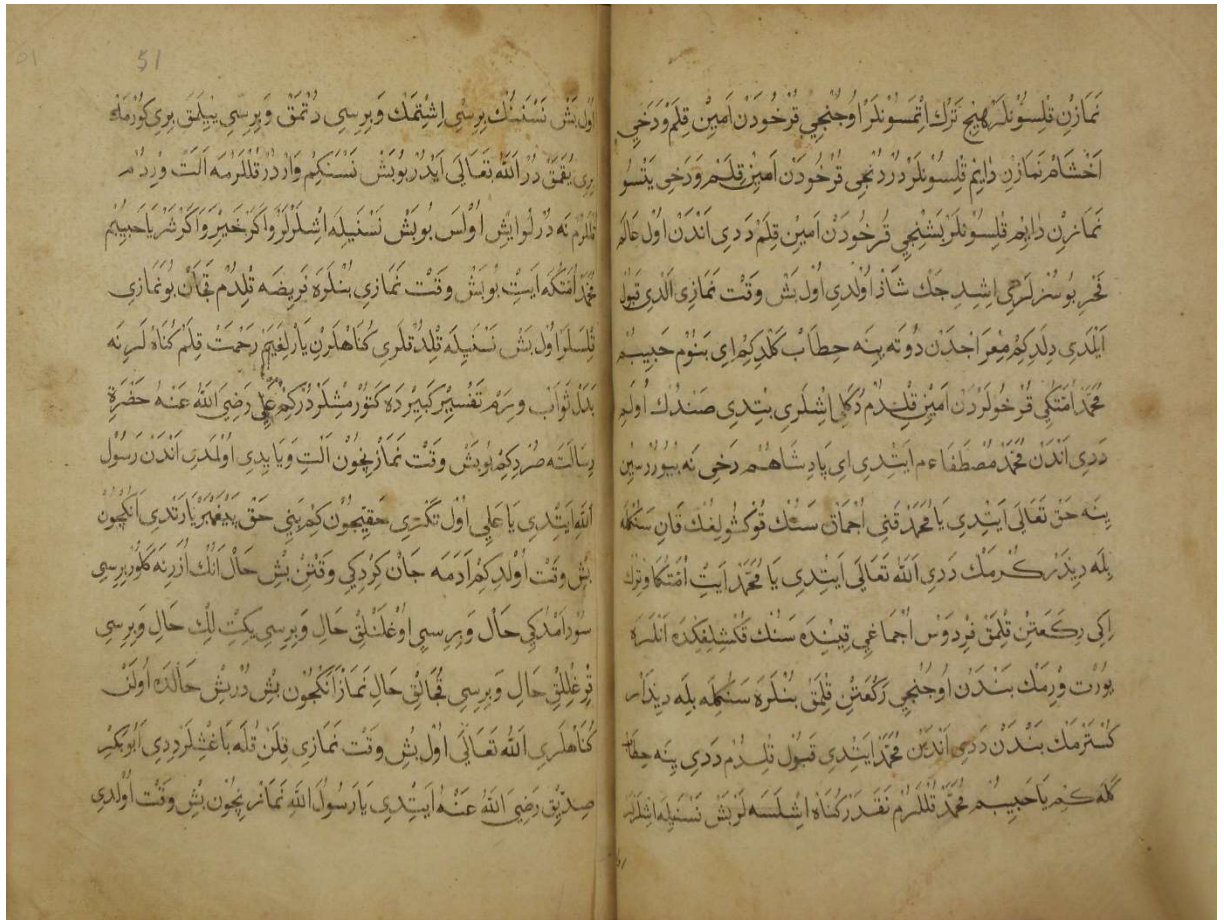 نَمَازِنْ قِلِسُونْلَرْ هِيچ تَرْك اِتْمَسُونْلَرْ اُوچُنْجِي قُرْخُودَنْ اَمِينْ قِلَمْ وَدَخِي
اَخْشَامْ نَمَازِنِ دَايِمْ قِلِسُونْلَرْ دُرْدُنْجِي قُرْخُودَنْ اَمِينْ قِلَمْ وَدَخِي يَتْسُو
نَمَازِنْ دَايِمْ قِلِسُونْلَرْ بَشِنْجِي قُرْخُودَنْ اَمِينْ قِلَمْ دَدِي اَنْدَنْ اُولْ عَالَمْ
فَخْرِ بُو سُزْلَرِي اِشِدِجَكْ شَاذْ اُولْدِي اُولْ بَشْ وَقْتْ نَمَازِي اَلْدِي قَبُولْ
اَيْلَدِي دِلَدِكِمْ مِعْرَاجْدَنْ دُونَه يِنَه خِطَابْ كَلْدِكِمْ اِي بَنُومْ حَبِيبُمْ
مُحَمَّدْ اُمَّتُكِي قُرْخُولَرْدَنْ اَمِينْ قِلِدُمْ دُكَلِي اِشْلَرِي بِتْدِي صَنْدُكْ اُولَمْ
دَدِي اَنْدَنْ مُحَمَّدْ مُصْطَفَا ءم اَيِتْدِي اِي پَادِشَاهُمْ دَخِي نَه بُيُورُرْسِينْ
يِنَه حَقْ تَعَالَي اَيِتْدِي يَا مُحَمَّدْ قَنِي اُجْمَاقْ سَنُكْ قُوكْشُولِغُكْ قَانِ سَنُكْلَه
بِلَه دِيذَرْ كُرْمَكْ دَدِي اَللّٰه تَعَالَي اَيِتْدِي يَا مُحَمَّدْ اَيِتْ اُمَّتُكَا وِتْرُكْ
اِكِي رِكَعَتِنْ قِلْمَقْ فِرْدَوْسْ اُجْمَاغِي قَتِنْدَه سَنُكْ قُكْشِلِقِكْدَه اَنْلَرَه
يُورْتْ وِرْمَكْ بَنْدَنْ اُوجُنْجِي رَكْعَتِنْ قِلْمَقْ بُنْلَرَه سَنُكْلَه بِلَه دِيذَارْ
كُسْتَرْمَكْ بَنْدَنْ دَدِي اَنْدَنْ مُحَمَّدْ اَيِتْدِي قَبُولْ قِلِدُمْ دَدِي يِنَه خِطَابْ
كَلَه كِمْ يَا حَبِيبُمْ مُحَمَّدْ قُلْلَرُمْ نَقَدَرْ كُنَاهْ اِشْلَسَه لَرْ بَشْ نَسْنَيِلَه اِشْلَرْلَرْ
51
اُولْ بَشْ نَسْنَنُكْ بِرِسِي اِشِتْمَكْ وَبِرِسِي دُتْمَقْ وَبِرِسِي يِيلَمَقْ بِرِي كُورْمَكْ
بِرِي يُقَمَقْ دُرْ اَللّٰه تَعَالَي اَيْدُرْ بُو بَشْ نَسْنَكِمْ وَارْدُرْ قُلْلَرُمَه اَلَتْ وِرْدُمْ
قُلْلَرُمْ نَه دُرْلُو اِيشْ اُولْسَ بُو بَشْ نَسْنَيِلَه اِشْلَرْلَرْ وَاكَرْ خَيِرْ وَاكَرْ شَرْ يَا حَبِيبُمْ
مُحَمَّدْ اُمَّتُكَه اَيِتْ بُو بَشْ وَقْتْ نَمَازِي بُنْلَرَه فَرِيضَه قِلِدُمْ قَچَانْ بُو نَمَازِي
قِلِسَلَرْ اُولْ بَشْ نَسْنَيِلَه قِلِدُقْلَرِي كُنَاهْلَرِنْ يَارْلِغَيَمْ رَحْمَتْ قِلَمْ كُنَاهْ لَرِنَه
بَدَلْ ثَوَابْ وِرَمْ تَفْسِيرْ كَبِيرْ دَه كَتُورْمِشْلَرْدُرْ كِمْ عَلِي رَضِيَ اللّٰهُ عَنْهُ حَضْرَةِ
رِسَالَتَه صُرْدِكِمْ بُو بَشْ وَقْتْ نَمَازْ نِچُونْ اَلْتِ وَيَا يِدِي اُولْمَدِي اَنْدَنْ رَسُولُ
اللّٰهِ اَيِتْدِي يَا عَلِي اُولْ تَكْرِي حَقِيچُونْ كِمْ بَنِي حَقْ پَيْغَمْبَرْ يَارَتْدِي اَنُكْچُونْ
بَشْ وَقْتْ اُولْدِكِمْ اَدَمَه جَانْ كِرْدِكِي وَقْتِنْ بَشْ حَالْ اَنُكْ اُزْرِنَه كَلُورْ بِرِسِي
سُودْ اَمْدُكِي حَالْ وَبِرِسِي اُوغْلَنْلِقْ حَالِ وَبِرِسِي يِكِتْ لِكْ حَالِ وَبِرِسِي
قِرْغِلْلِقْ حَالِ وَبِرِسِي قُجَالِقْ حَالِ نَمَازْ اَنُكْچُونْ بَشْ دُرْ بَشْ حَالْدَه اُولَنْ
كُنَاهْلَرِي اَللّٰه تَعَالَي اُولْ بَشْ وَقْتْ نَمَازِي قِلَنْ قُلَه بَاغِشْلَرْ دِدِي اَبُو بَكِرْ
صِدِّيقْ رَضِيَ اللّٰهُ عَنْهُ اَيِتْدِي يَا رَسُولَ اللّٰهِ نَمَازْ نِچُونْ بَشْ وَقْتْ اُولْدِي